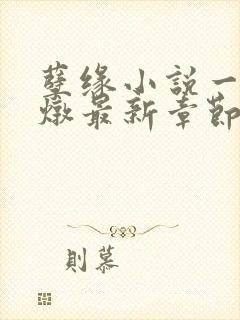 孽缘小説一
燉最新章節
則慕